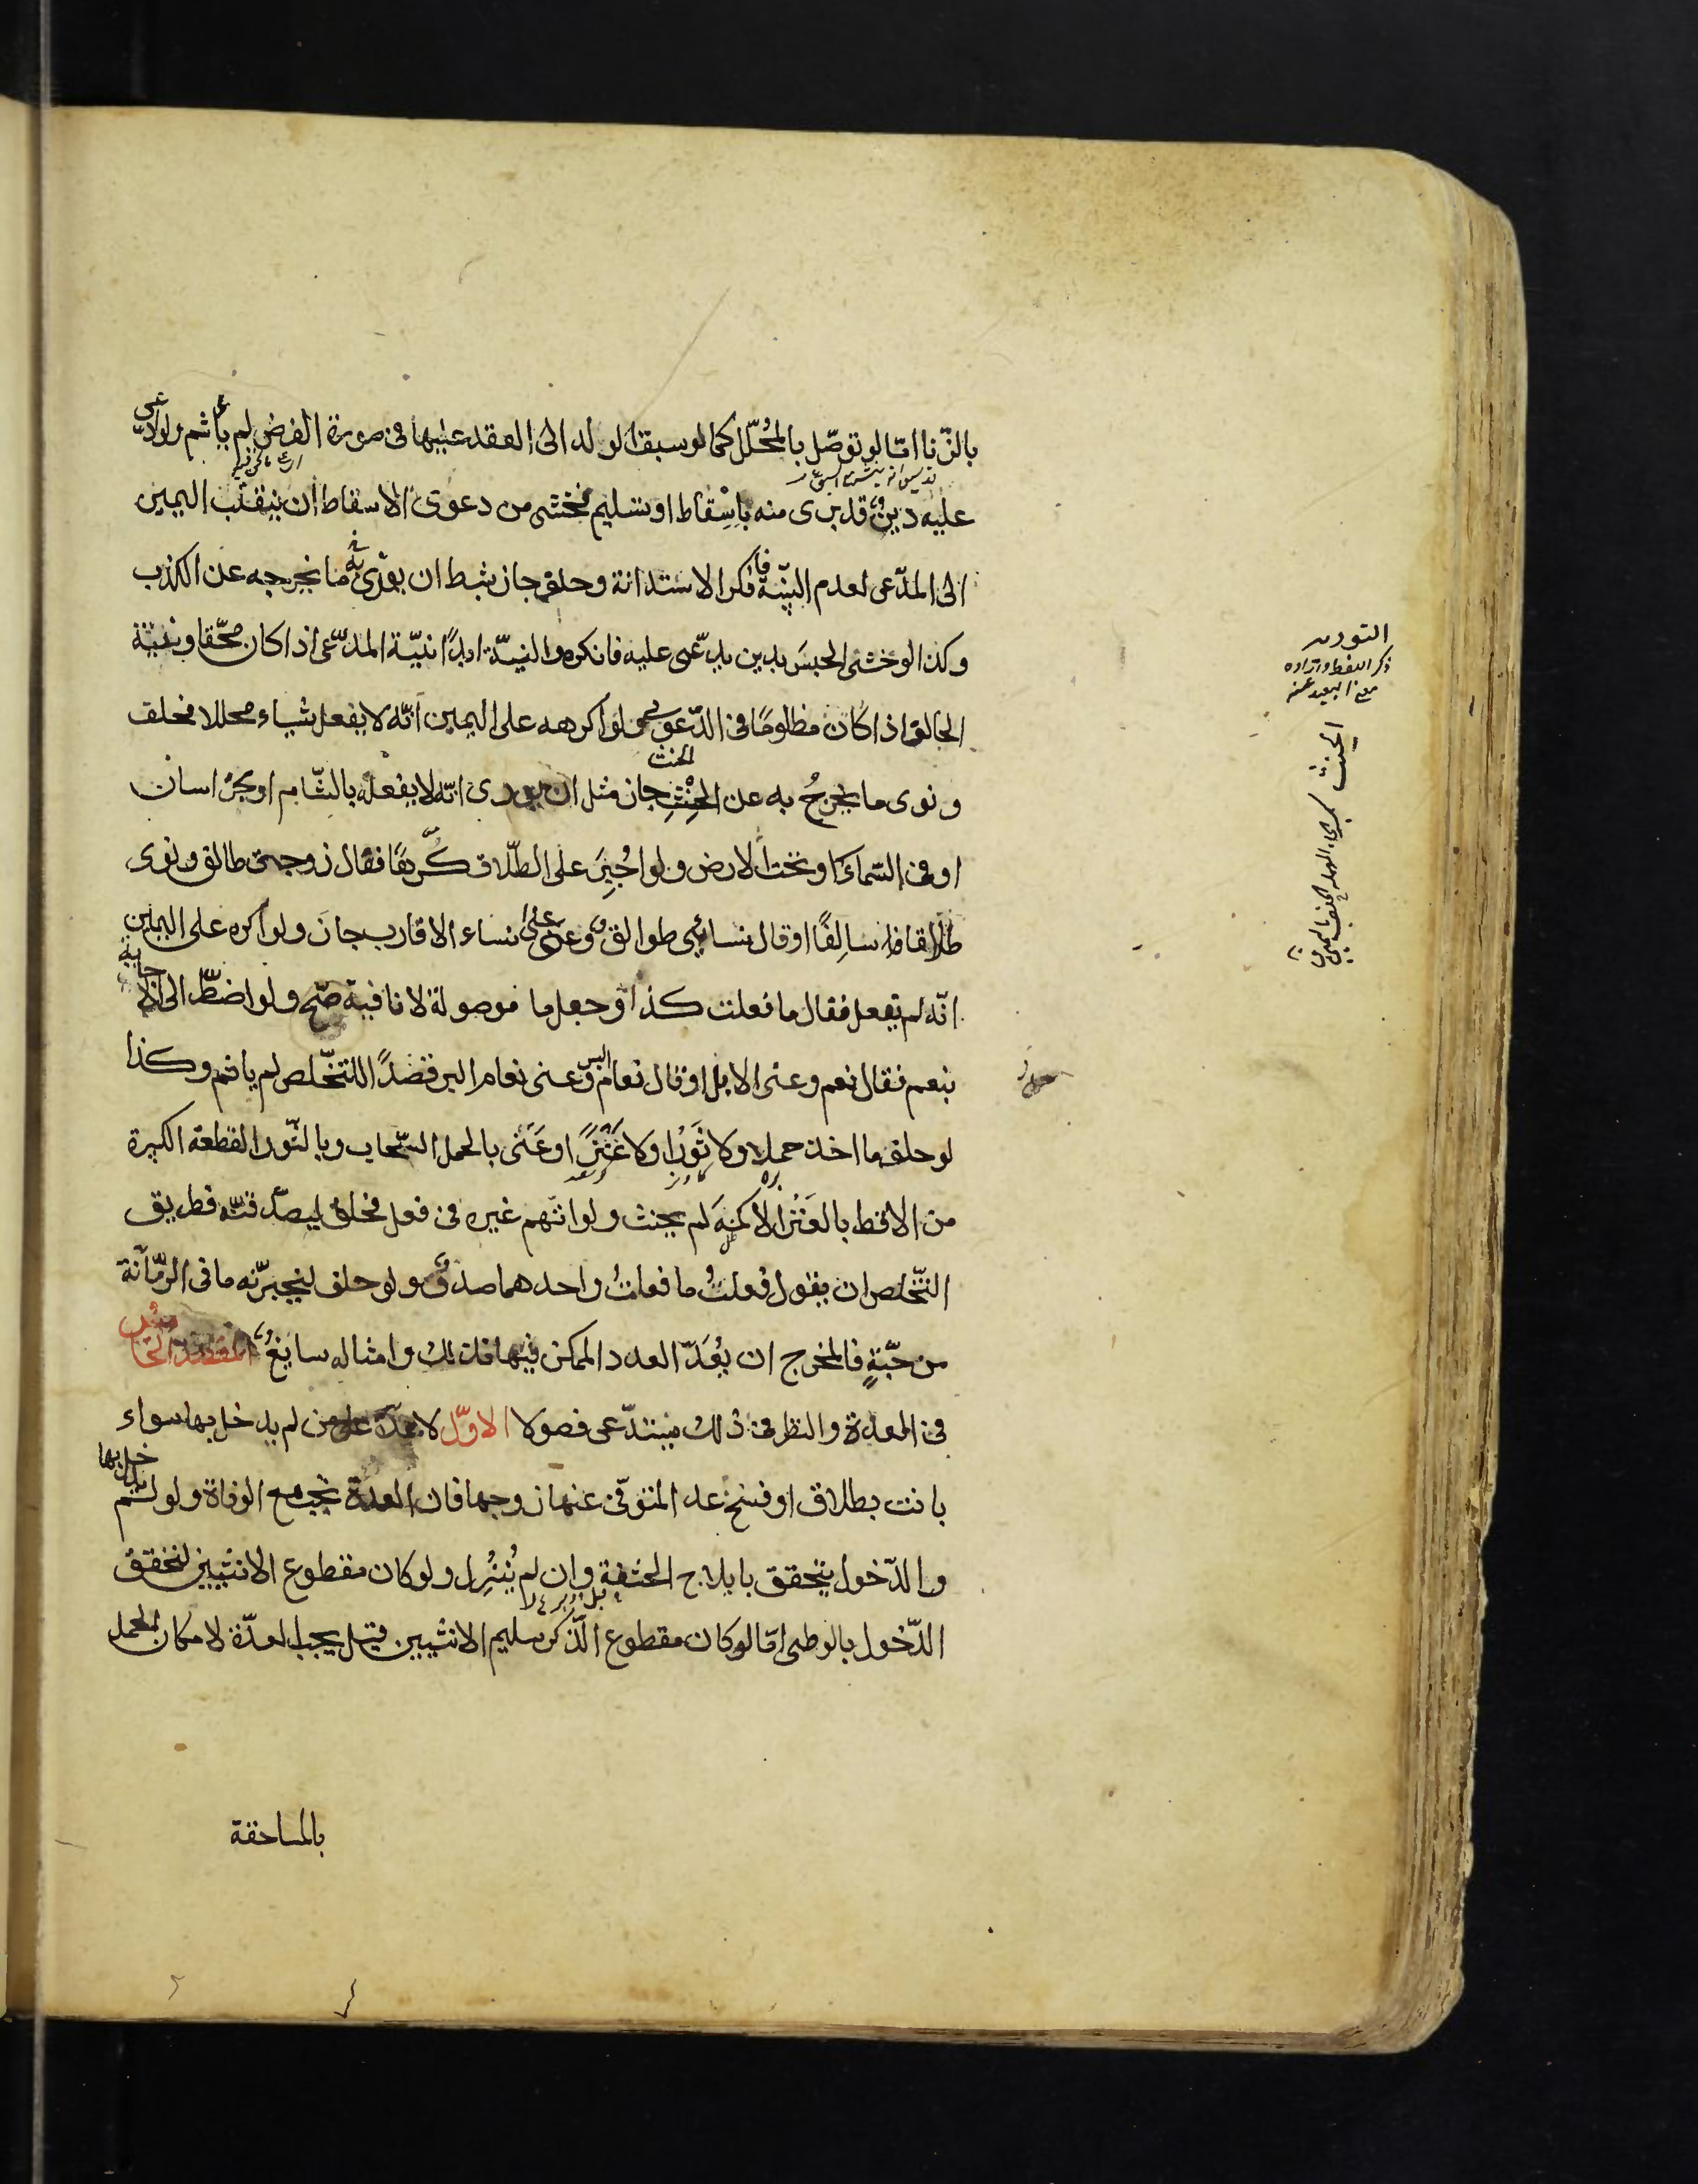 بالزّنا امّا لو توصّل بالمُحلّل كما لو سبقا لولد الى العقد عليها فى صورة الفرض لم يأثم ولو ادعى
عليه دين قد برى منه باِسْقاط او تسليم فخشى من دعوى الاسقاط ان ينقلب اليمين
الى المدّعى لعدم البيّنة فانكر الاستدانة وحلف جاز بشرط ان يورّى به ما يخرجه عن الكذب
وكذا لو خشى الحبسَ بدين يدّعى عليه فانكره والنيّة ابدًا نيّة المدّعى اذا كان محّقا ونيّة
الحالف اذا كان مظلومًا فى الدّعوى ولو اكرهه على اليمين انّه لا يفعل شياء محللا فحلف
ونوى ما يخرجُ به عن الحِنْثِ جاز مثل ان يورى انّه لا يفعله بالشّام او بخراسان
او فى السّماء او تحت الارض ولو اُجبِرَ على الطّلاق كُرهًا فقال زوجتى طالق ونوى
طلاقا سالِفًا او قال نسائى طوالق وعنى نساء الاقارب جازَ ولو اكره على اليمين
انّه لم يفعل فقال ما فعلت كذا وجعل ما موصولة لا نافية صّح ولو اضطّر الى اجابة
بنعم فقال نعم وعنى الابل او قال نعام وعنى نعام البر قصدًا للتخّلص لم ياثم وكذا
لو حلف ما اخذ حملا ولا ثَوْرًا ولا عَنْزًا وعَنى بالحمل السّحاب وبالثّور القطعة الكبيرة
من الاقط بالعَنْز الاكمة لم يحنث ولو اتّهم غيره فى فعل فحلف ليصدّقنّه فطريق
التّخلص ان يقول فعلتُ ما فعلتُ واحدهما صدق ولو حلف ليخبرّنه ما فى الرّمّانة
من حّبّةٍ فالمخرج ان يُعَدّ العدد الممكن فيها فذلك وامثاله سايغ المقصد الخامس
فى العدة والنظر فى ذلك يستدّعى فصولا الاوّل لا عدّة على من لم يدخل بها سواء
بانت بطلاق او فسخ عدا المتوفّى عنها زوجها فان العدة تجب مع الوفاة ولو لم يدخل بها
والدّخول يتحقق بايلاج الحشفة وان لم يُنْزِل ولو كان مقطوع الانثيين لتحقق
الدّخول بالوطى امّا لو كان مقطوع الذّكر سليم الانثيين قيل يجب العدّة لامكان الحمل
بالمساحقة
التوريه
ذكر اللفظ وارداده
معنا البعيد عنه
الحنث